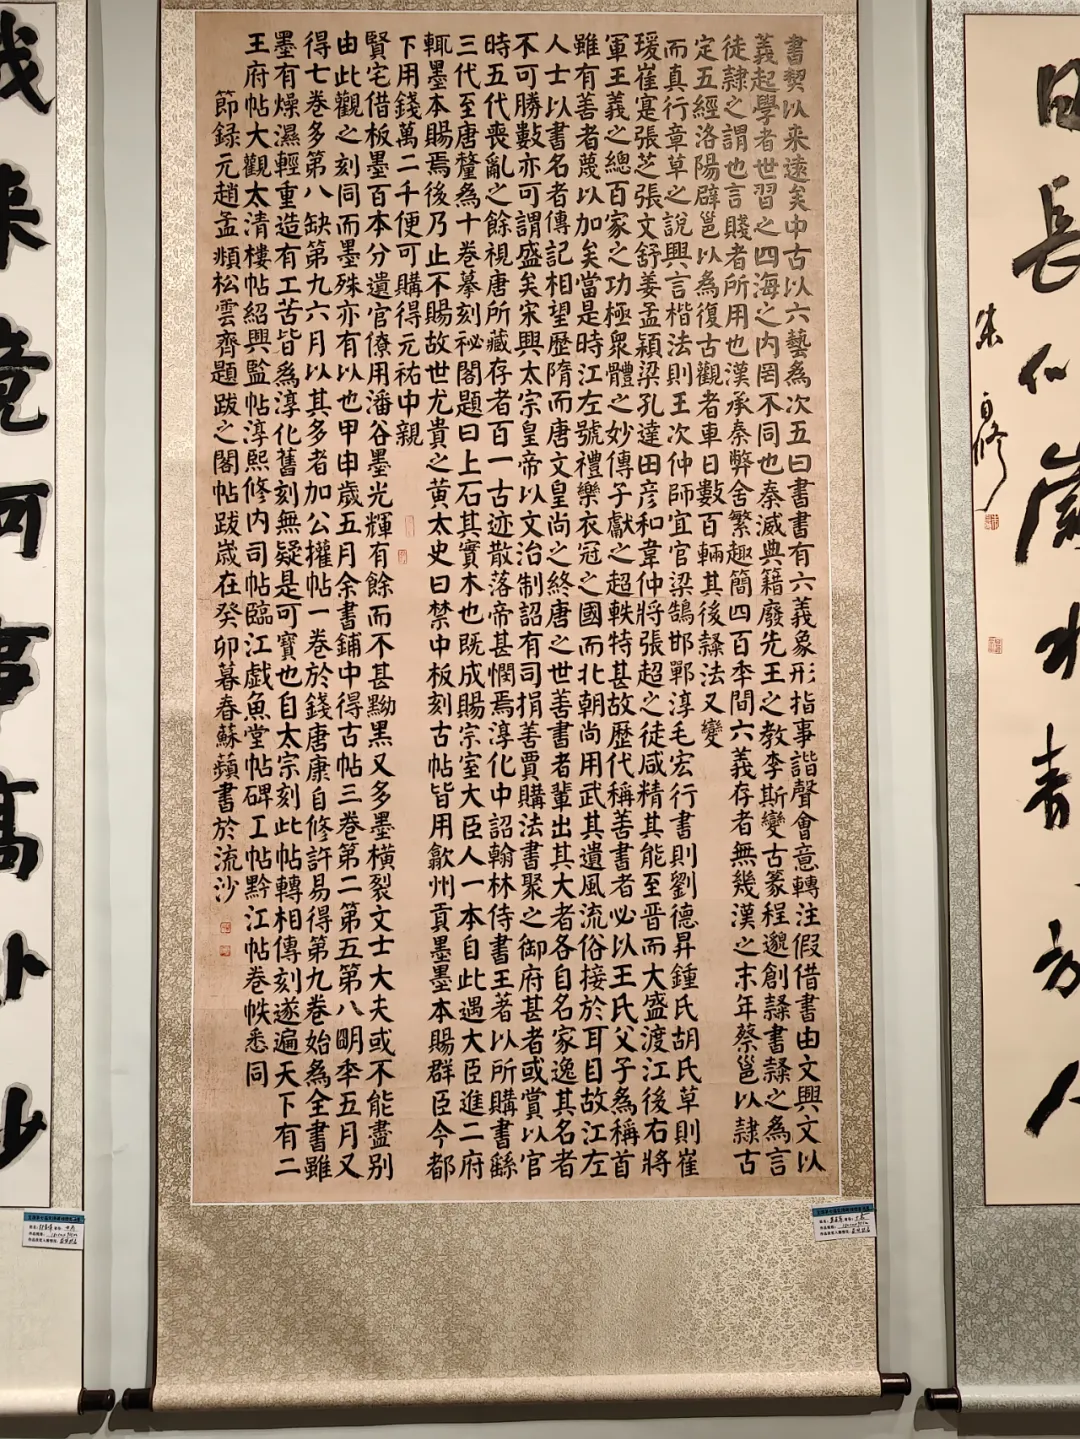 日長似歲
人
朱自修
書契以来遠矣中古以六藝為次五曰書書有六義象形指事諧聲會意轉注假借書由文興文以
義起學者世習之四海之内罔不同也秦滅典籍廢先王之教李斯變古篆程邈創隸書隸之為言
徒隸之謂也言賤者所用也漢承秦弊舍繁趣簡四百秊間六義存者無幾漢之末年蔡邕以隸古
定五經洛陽辟邕以為復古觀者車日數百輛其後隸法又變
而真行章草之說興言楷法則王次仲師宜官梁鵠邯鄲淳毛宏行書則劉德昇鍾氏胡氏草則崔
瑗崔寔張芝張文舒姜孟穎梁孔達田彦和韋仲將張超之徒咸精其能至晋而大盛渡江後右將
軍王義之總百家之功極衆體之妙傳子獻之超軼特甚故歷代稱善書者必以王氏父子為稱首
雖有善者蔑以加矣當是時江左號禮樂衣冠之國而北朝尚用武其遺風流俗接於耳目故江左
人士以書名者傳記相望歷隋而唐文皇尚之終唐之世善書者輩出其大者各自名家逸其名者
不可勝數亦可謂盛矣宋興太宗皇帝以文治制詔有司捐善賈購法書聚之御府甚者或賞以官
時五代喪亂之餘視唐所藏存者百一古迹散落帝甚憫焉淳化中詔翰林侍書王著以所購書繇
三代至唐釐為十卷摹刻秘閣題曰上石其實木也既成賜宗室大臣人一本自此遇大臣進二府
輒墨本賜焉後乃止不賜故世尤貴之黄太史曰禁中板刻古帖皆用歙州貢墨墨本賜群臣今都
下用錢萬二千便可購得元祐中親
賢宅借板墨百本分遺官僚用潘谷墨光輝有餘而不甚黝黑又多墨橫裂文士大夫或不能盡别
由此觀之刻同而墨殊亦有以也甲申歲五月余書鋪中得古帖三卷第二第五第八明秊五月又
得七卷多第八缺第九六月以其多者加公權帖一卷於錢唐康自修許易得第九卷始為全書雖
墨有燥濕輕重造有工苦皆為淳化舊刻無疑是可寶也自太宗刻此帖轉相傳刻遂遍天下有二
王府帖大觀太清樓帖紹興監帖淳熙修内司帖臨江戲魚堂帖碑工帖黔江帖卷帙悉同
節録元趙孟頫松雲齊題跋之閣帖跋歲在癸卯暮春蘇蘋書於流沙
我来竟何事高卧沙